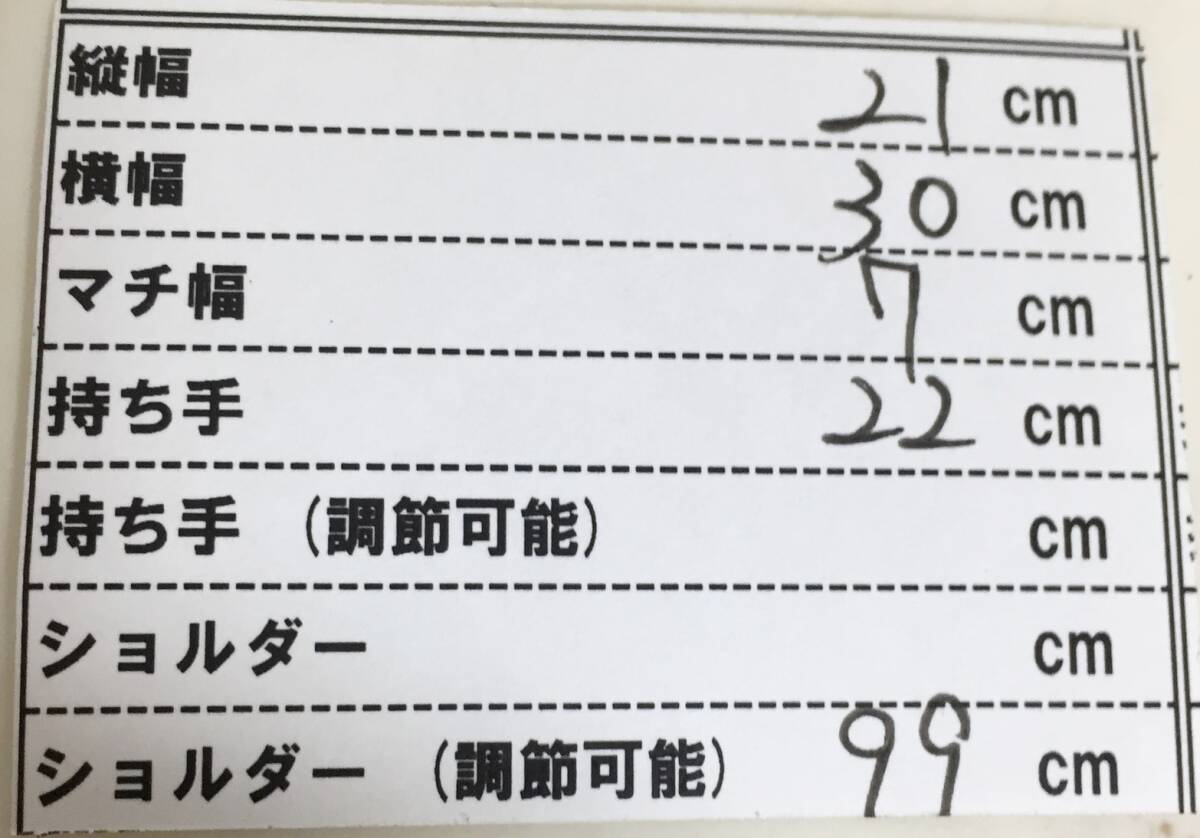 縦幅 21 cm
横幅 30 cm
マチ幅 7 cm
持ち手 22 cm
持ち手 (調節可能) cm
ショルダー cm
ショルダー (調節可能) 99 cm